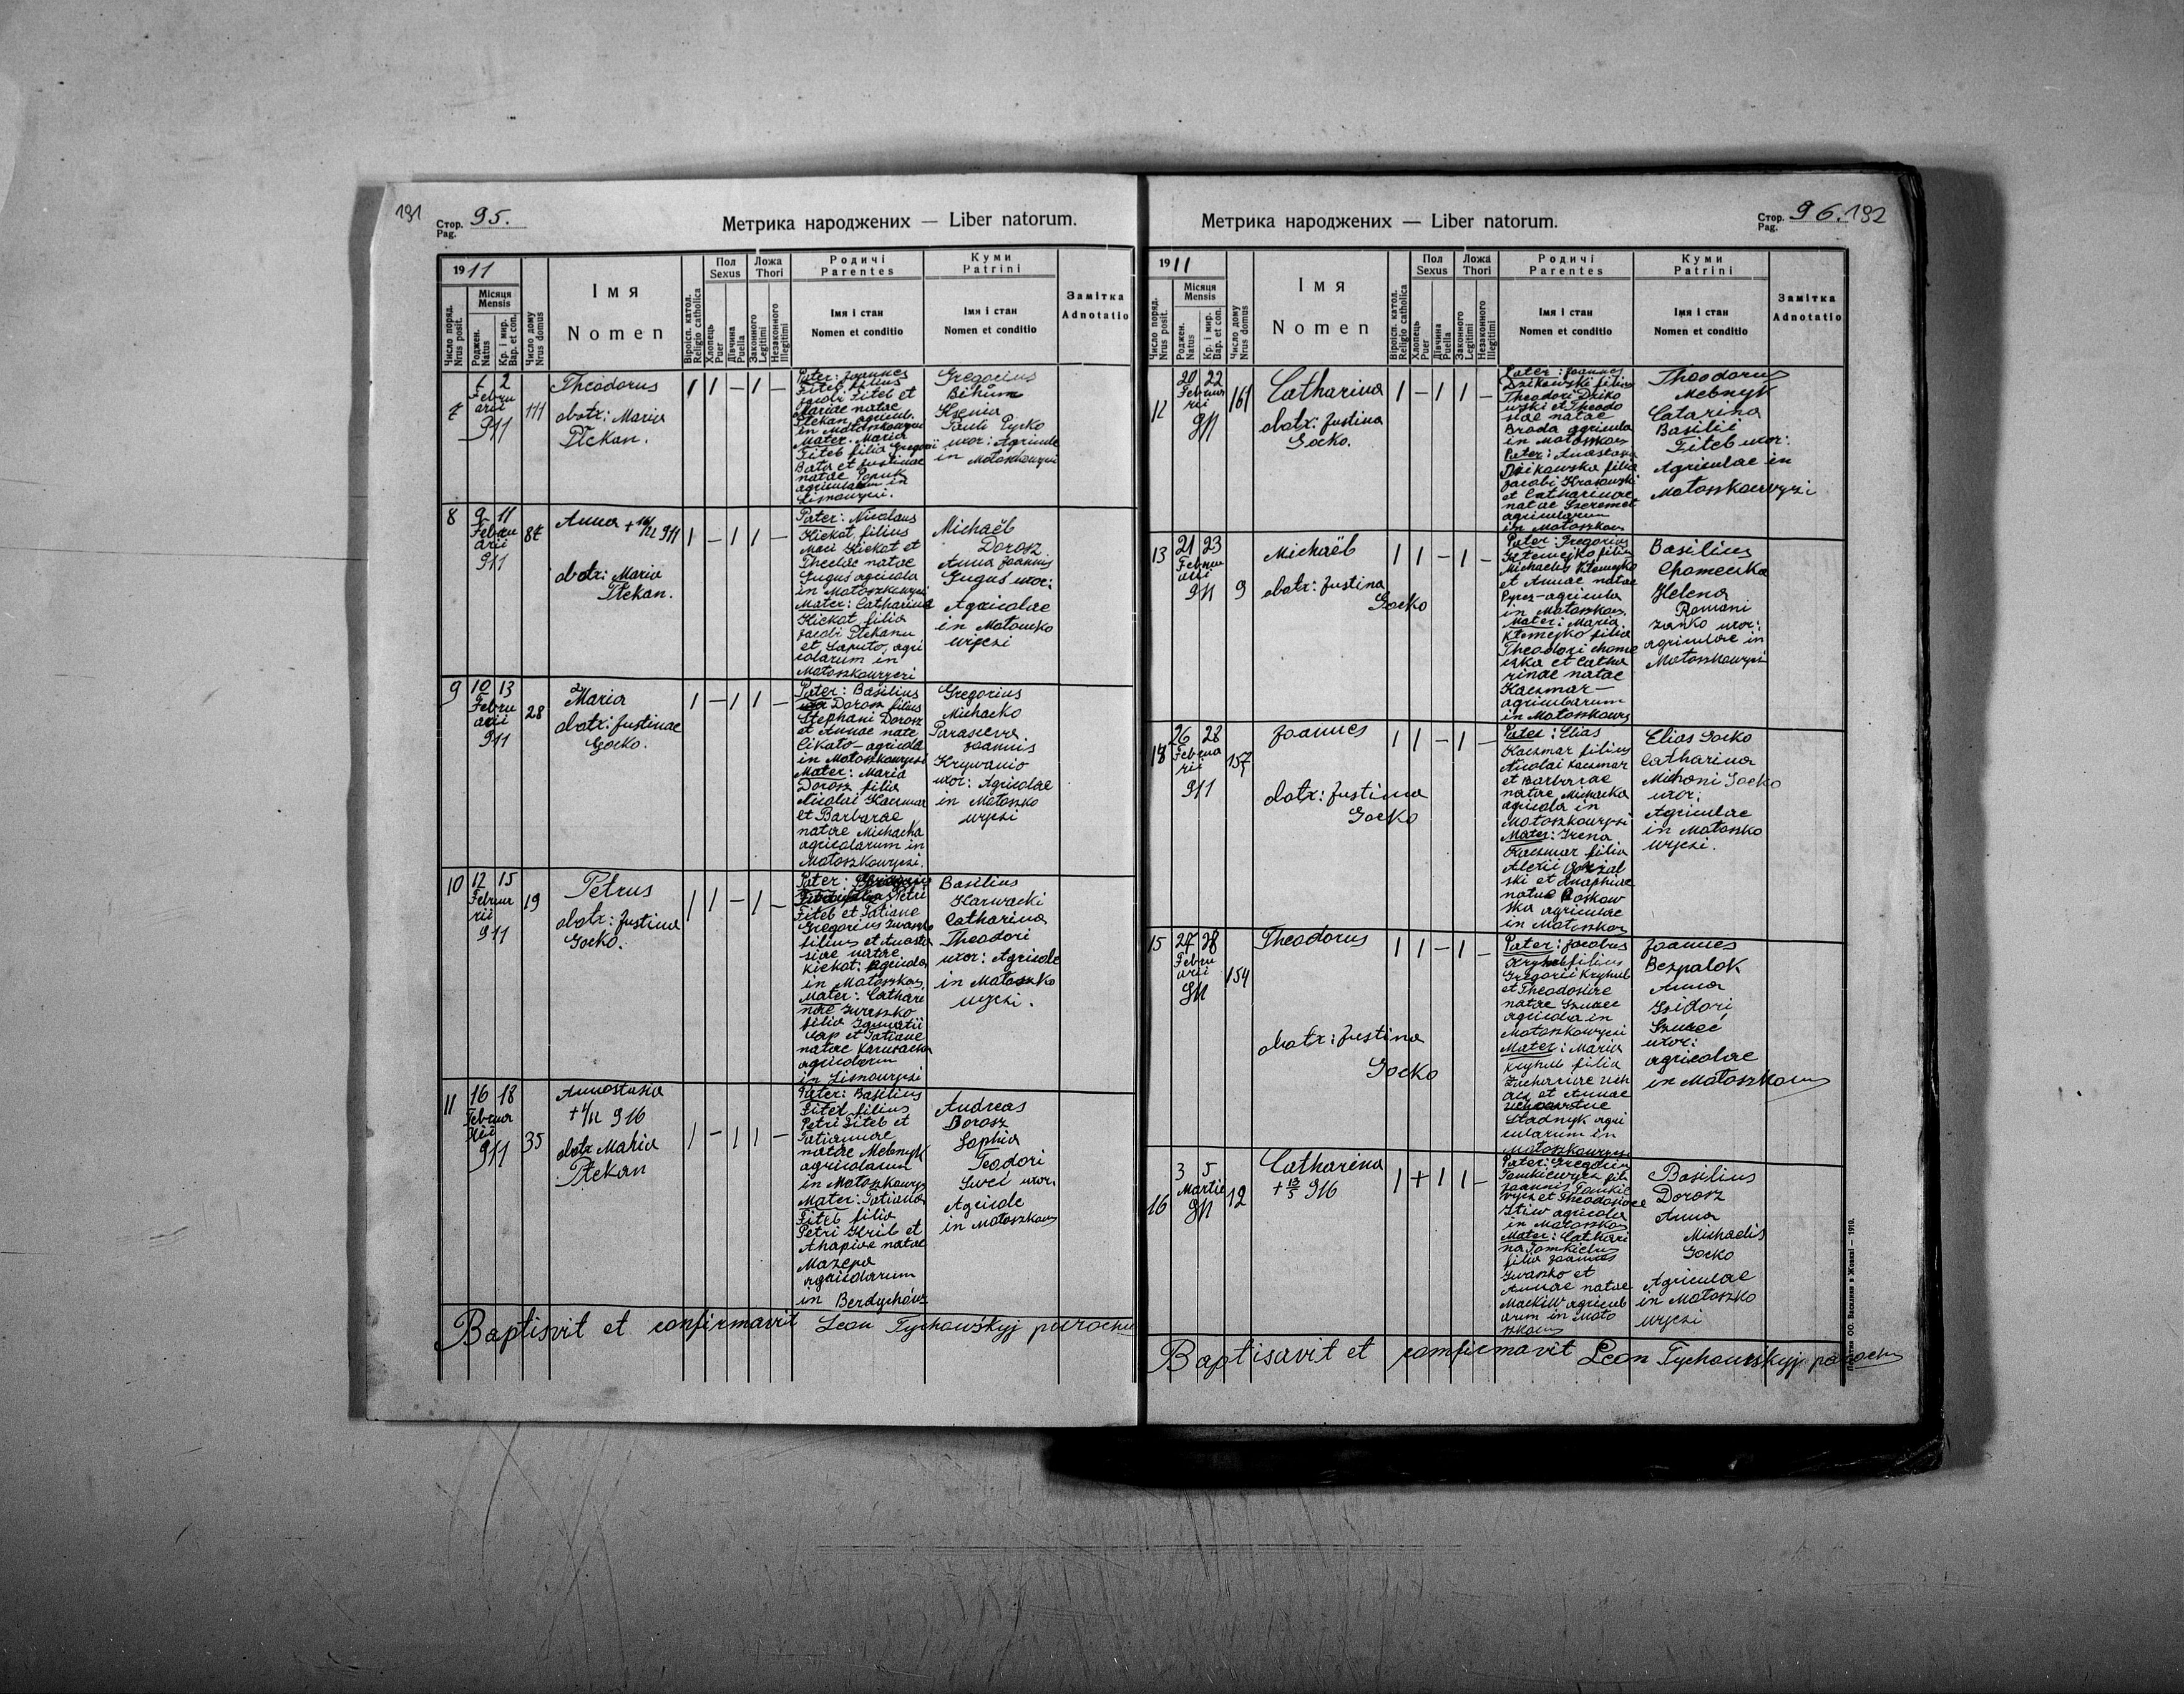 191
Стор. Pag. 95.
Метрика народжених — Liber natorum.
1911
Число поряд. Nrus posit.
Місяця Mensis
Роджен. Natus
Кр. і мир. Bap. et con.
Число дому Nrus domus
Імя
Nomen
Віроісп. катол. Religio catholica
Пол Sexus
Хлопець Puer
Дівчина Puella
Ложа Thori
Законного Legitimi
Незаконного Illegitimi
Родичі Parentes
Імя і стан
Nomen et conditio
Куми Patrini
Імя і стан
Nomen et conditio
Замітка
Adnotatio
7
1 2
Febru
arii
911
111
Theodorus
obstx: Maria
Ptekan.
1 1 — 1 —
Pater: Joannes
Fiteb filius
Jacobi Fiteb et
Mariae natae
Ptekan agricol.
in Matoszkowyczi
Mater. Maria
Fiteb filia Gregorii
et Justinae
natae Popuk
agricolarum in
Lisnowyczi.
Gregorius
Bihun
Ksenia
Pauli Pyrko
uxor: Agricole
in Matoszkowyczi
8
9 11
Febru
arii
911
87
Anna + 911
obstx: Maria
Ptekan.
1 — 1 1 —
Pater: Nicolaus
Kickot, filius
Kickot et
Theclae natae
Gugus agricola
in Matoszkowyczi
Mater: Catharina
Kickot filia
Jacobi Ptekanu
et Saputo, agri
colarum in
Matoszkowyczi
Michaël
Dorosz
Anna Joannis
Gugus uxor:
Agricolae
in Matoszko
wyczi
9
10 13
Febru
arii
911
28
Maria
obstx: Justinae
Gocko.
1 — 1 1 —
Pater: Basilius
Dorosz filius
Stephani Dorosz
et Annae nate
Cikato — agricola
in Matoszkowyczi
Mater: Maria
Dorosz filia
Nicolai Kaczmar
et Barbarae
natae Michacka
agricolarum in
Matoszkowyczi.
Gregorius
Michacko
Parascevia
Joannis
Krywanio
uxor: Agricolae
in Matoszko
wyczi
10
12 15
Februa
rii
911
19
Petrus
obstx: Justina
Gocko.
1 1 — 1 —
Pater:
Petri
Fiteb et Tatiane
Gregorius Iwaszko
filius et Anasta
siae natae
Kickot: agricola
in Matoszkow.
Mater: Cathari
nae Iwaszko
filia Ignatii
Cap et Tatiane
natae Karwacka
agricolarum
in Lisnowyczi
Basilius
Karwacki
Catharina
Theodori
uxor: Agricole
in Matoszko
wyczi.
11
16 18
Februa
rii
911
35
Annastasia
+ 916
obstx Maria
Ptekan
1 — 1 1 —
Pater: Basilius
Fiteb filius
Petri Fiteb et
Tatiannae
natae Mebnyk
agricolarum
in Matoszkowyz
Mater: Tatiana
Fiteb filia
Petri Hrib et
Ahapiae natae
Mazepa
agricolarum
in Berdychów
Andreas
Dorosz
Sophia
Teodori
Swei uxor.
Agricole
in Matoszkow
Baptisvit et confirmavit Leon Tychowskyj parochu
Метрика народжених — Liber natorum.
Стор. Pag. 96. 192
1911
Число поряд. Nrus posit.
Місяця Mensis
Роджен. Natus
Кр. і мир. Bap. et con.
Число дому Nrus domus
Імя
Nomen
Віроісп. катол. Religio catholica
Пол Sexus
Хлопець Puer
Дівчина Puella
Ложа Thori
Законного Legitimi
Незаконного Illegitimi
Родичі Parentes
Імя і стан
Nomen et conditio
Куми Patrini
Імя і стан
Nomen et conditio
Замітка
Adnotatio
12
20 22
Februa
rii
911
161
Catharina
obstx: Justina
Gocko.
1 — 1 1 —
Pater: Joannes
Dzikowski filius
Theodori Dziko
wski et Theodo
siae natae
Broda agricola
in Matoszkow
Pater: Anastasia
Dzikowska filia
Jacobi Krasowski
et Catharinae
natae Szeremet
agricolarum
in Matoszkow
Theodorus
Mebnyk
Catarina
Basilii
Fiteb uxor:
Agriculae in
Matoszkowyczi
13
21 23
Febru
arii
911
9
Michaël
obstx: Justina
Gocko
1 1 — 1 —
Pater: Gregorius
Ktemejko filius
Michaelis Ktemyko
et Annae natae
Pyrcz — agricola
in Matoszkow.
Mater: Maria
Ktemejko filia
Theodori Chome
czka et Catha
rinae natae
Kaczmar —
agricolarum
in Matoszkowy
Basilius
Chomeczka
Helena
Romani
Zanko uxor:
agricolae in
Matoszkowyczi
14
26 28
Februa
rii
911
157
Joannes
obstx: Justina
Gocko
1 1 — 1 —
Pater: Elias
Kaczmar filius
Nicolai Kaczmar
et Barbarae
natae Michacka
agricola in
Matoszkowyczi
Mater: Irena
Kaczmar filia
Alexii
ski et Anaphiae
natae
ska agricolae
in Matoszkow
Elias Gocko
Catharina
Gocko
uxor:
Agricolae
in Matoszko
wyczi.
15
27 28
Febru
arii
911
154
Theodorus
obstx: Justina
Gocko
1 1 — 1 —
Pater: Jacobus
Kryhub filius
Gregorii Kryhub
et Theodosiae
natae Szwaec
agricola in
Matoszkowyczi
Mater: Maria
Kryhub filia
Zachariae
et Annae
Stadnyk agri
colarum in
Matoszkowyczi
Joannes
Bezpalok
Anna
Isidori
Szwaec
uxor:
agricolae
in Matoszkow
16
3 5
Martii
911
12
Catharina
+ 13/5 916
1 + 1 1 —
Pater: Gregorius
Tomkiewycz fil.
Joannis Tomkie
wycz et Theodosiae
Itiw agricola
in Matoszkow
Mater: Cathari
na Tomkiewicz
filia Joannes
Iwaszko et
Annae natae
Mackiw agricol
arum in Mato
szkow
Basilius
Dorosz
Anna
Michaelis
Gocko
Agriculae
in Matoszko
wyczi
Baptisavit et confirmavit Leon Tychowskyj parochu
Печатня ОО. Василиян в Жовкві — 1910.